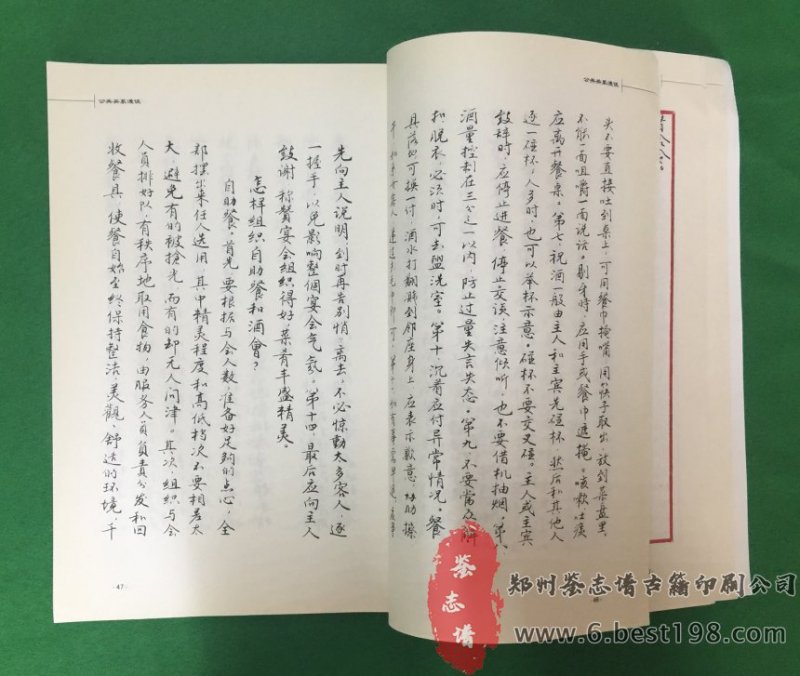 公共关系漫谈
头不要直接吐到桌上，可用餐巾掩嘴，用筷子取出，放到菜盘里。
不能一面咀嚼一面说话。剔牙时，应用手或餐巾遮掩。咳嗽吐痰
应离开餐桌。第七，祝酒一般由主人和主宾先碰杯，然后和其他人
逐一碰杯，人多时，也可以举杯示意。碰杯不要交叉碰。主人或主宾
致辞时，应停止进餐，停止交谈，注意倾听，也不要借机抽烟。第八，
酒量控制在三分之一以内，防止过量失言失态。第九，不要当众解
扣脱衣，必须时，可去盥洗室。第十，沉着应付异常情况。餐
具落地可换一付，酒水打翻溅到邻座身上，应表示歉意，协助擦
公共关系漫谈
先向主人说明，到时再告别悄悄离去，不必惊动太多客人，逐
一握手，以免影响整個宴会气氛。第十四，最后应向主人
致谢，称赞宴会组织得好，菜肴丰盛精美。
怎样组织自助餐和酒會？
自助餐。首先，要根据与会人数，准备好足夠的点心，全
部摆出来任人选用，其中精美程度和高低档次不要相差太
大，避免有的被搶光，而有的却无人问津。其次，组织与会
人员排好队，有秩序地取用食物，由服务人员负责分发和回
收餐具，使餐自始至终保持整洁、美觀、舒适的环境，千
47
鉴志谱
郑州鉴志谱古籍印刷公司
www.6.best198.com